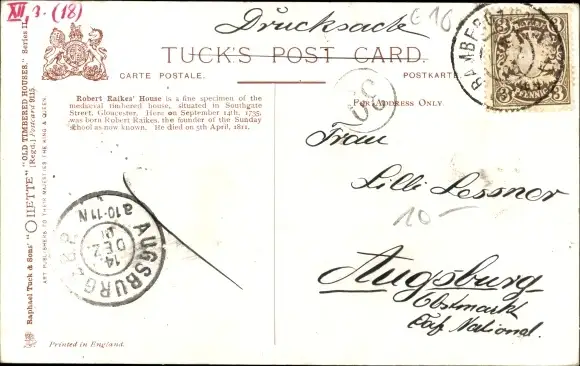 XII, 3. (18)
Drucksache
E 16
TUCK'S POST CARD.
CARTE POSTALE.
POSTKARTE.
FOR ADDRESS ONLY
Robert Raikes' House is a fine specimen of the
mediæval timbered house, situated in Southgate
Street, Gloucester. Here on September 14th, 1735,
was born Robert Raikes, the founder of the Sunday
School as now known. He died on 5th April, 1811.
Raphael Tuck & Sons' "OILETTE" "OLD TIMBERED HOUSES." Series II.
(Regd.) Postcard 9115.
ART PUBLISHERS TO THEIR MAJESTIES THE KING & QUEEN.
30
BAMBERG
3
3
PFENNIG
Frau
Lilli Lessner
10-
Augsburg
Obstmarkt
Caf. National.
AUGSBURG
14
DEZ
a10-11N
Printed in England.